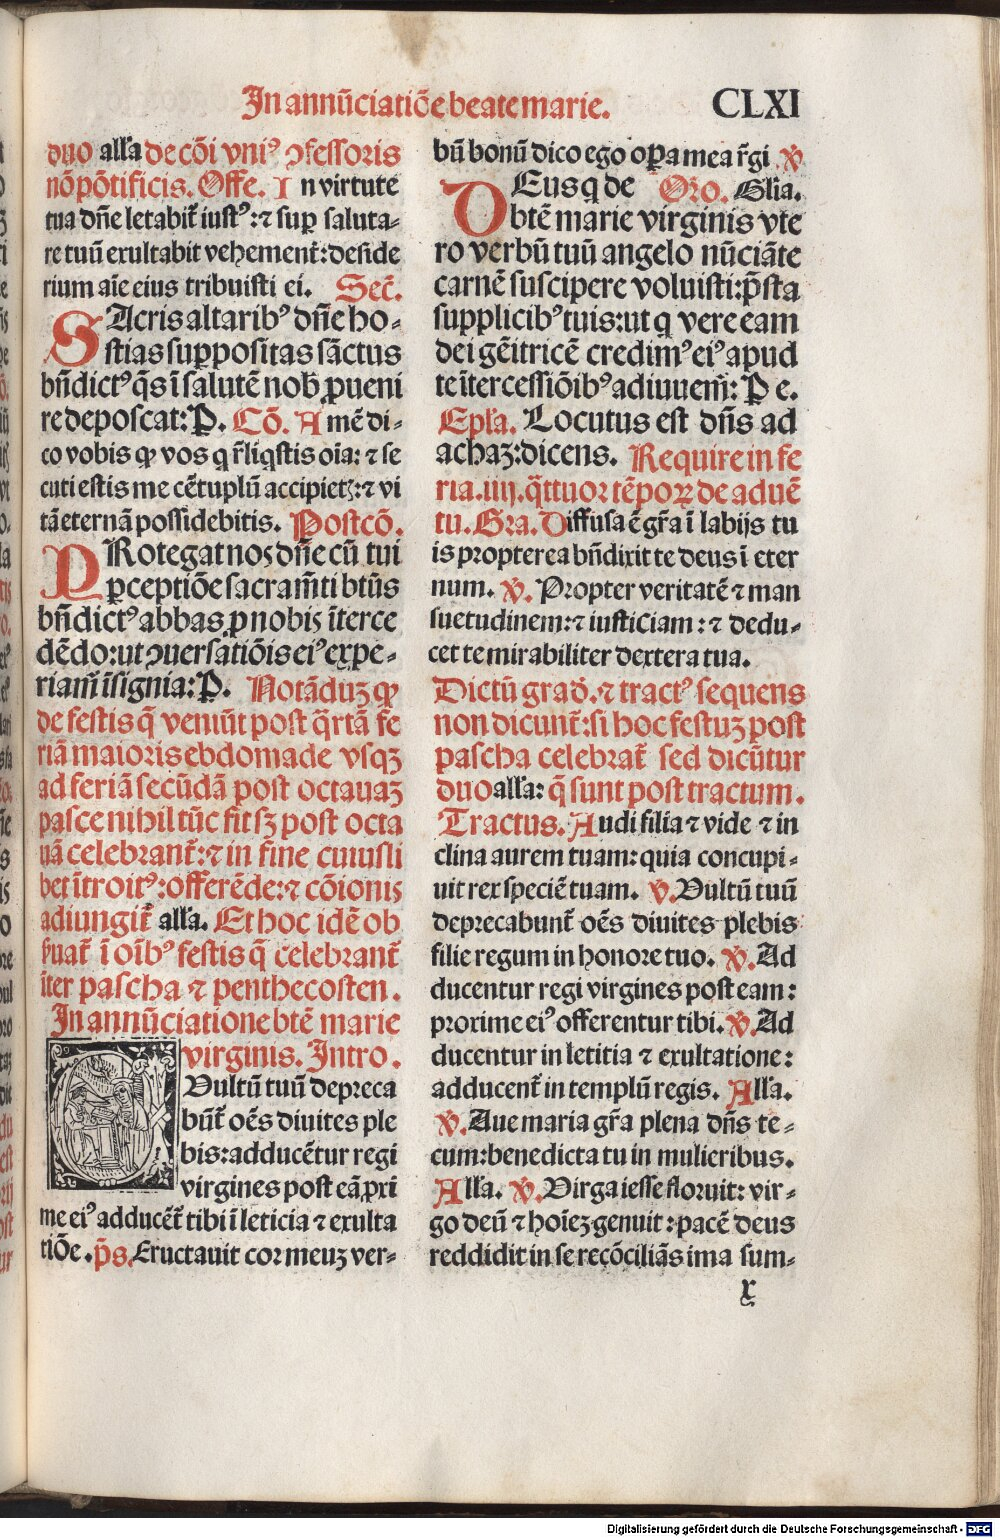 In annūciatiōe beate marie. CLXI
duo all'a de cōi vniꝰ ꝯfessoris
nō pōtificis. Offe. In virtute
tua dn̄e letabit̄ iustꝰ: ⁊ suꝑ saluta-
re tuū exultabit vehement̄: deside
rium aīe eius tribuisti ei. Sec̄.
SAcris altaribꝰ dn̄e ho-
stias suꝑpositas sāctus
bn̄dictꝰ q̄s ī salutē nob̄ ꝓueni
re deposcat: P. Cō. Amē di-
co vobis ꝙ vos q r̄liq̄stis oīa: ⁊ se
cuti estis me cētuplū accipietꝫ: ⁊ vi
tā eternā possidebitis. Postcō.
PRotegat nos dn̄e cū tui
ꝑceptiōe sacram̄ti bt̄us
bn̄dictꝰ abbas ꝓ nobis īterce
dēdo: ut ꝯuersatiōis eiꝰ exꝑe-
riam̄ īsignia: P. Notāduꝫ ꝙ
de festis q̄ veniūt post q̄rtā fe
riā maioris ebdomade vsqꝫ
ad feriā secūdā post octauaꝫ
pasce nihil tūc fit sꝫ post octa
uā celebrant̄: ⁊ in fine cuiusli
bet ītroitꝰ: offerēde: ⁊ cōionis
adiungit̄ all'a. Et hoc idē ob
ẜuat̄ ī oībꝰ festis q̄ celebrant̄
īter pascha ⁊ penthecosten.
In annūciatione bt̄e marie
virginis. Intro.
Vultū tuū depreca
būt̄ oēs diuites ple
bis: adducētur regi
virgines post eā ꝓxi
me eiꝰ adducēt̄ tibi ī leticia ⁊ exulta
tiōe. p̄s. Eructauit cor meuꝫ ver-
bū bonū dico ego oꝑa mea r̄gi ℣
DEus q de Oro. Gl'ia.
bt̄e marie virginis vte
ro verbū tuū angelo nūciāte
carnē suscipere voluisti: p̄sta
supplicibꝰ tuis: ut q vere eam
dei gēitricē credimꝰ eiꝰ apud
te ītercessiōibꝰ adiuuem̄: P e.
Epl'a. Locutus est dn̄s ad
achaꝫ: dicens. Require in fe
ria. iiij. q̄ttuor tēpoꝝ de aduē
tu. Gra. Diffusa ē gr̄a ī labijs tu
is propterea bn̄dixit te deus ī eter
num. ℣. Propter veritatē ⁊ man
suetudinem: ⁊ iusticiam: ⁊ dedu-
cet te mirabiliter dextera tua.
Dictū grad̄. ⁊ tractꝰ sequens
non dicunt̄: si hoc festuꝫ post
pascha celebrat̄ sed dicūtur
duo all'a: q̄ sunt post tractum.
Tractus. Audi filia ⁊ vide ⁊ in
clina aurem tuam: quia concupi-
uit rex speciē tuam. ℣. Vultū tuū
deprecabunt̄ oēs diuites plebis
filie regum in honore tuo. ℣. Ad
ducentur regi virgines post eam:
proxime eiꝰ offerentur tibi. ℣. Ad
ducentur in letitia ⁊ exultatione:
adducent̄ in templū regis. All'a.
℣. Aue maria gr̄a plena dn̄s te-
cum: benedicta tu in mulieribus.
All'a. ℣. Virga iesse floruit: vir-
go deū ⁊ hoīeꝫ genuit: pacē deus
reddidit in se recōciliās ima sum-
x
Digitalisierung gefördert durch die Deutsche Forschungsgemeinschaft - DFG